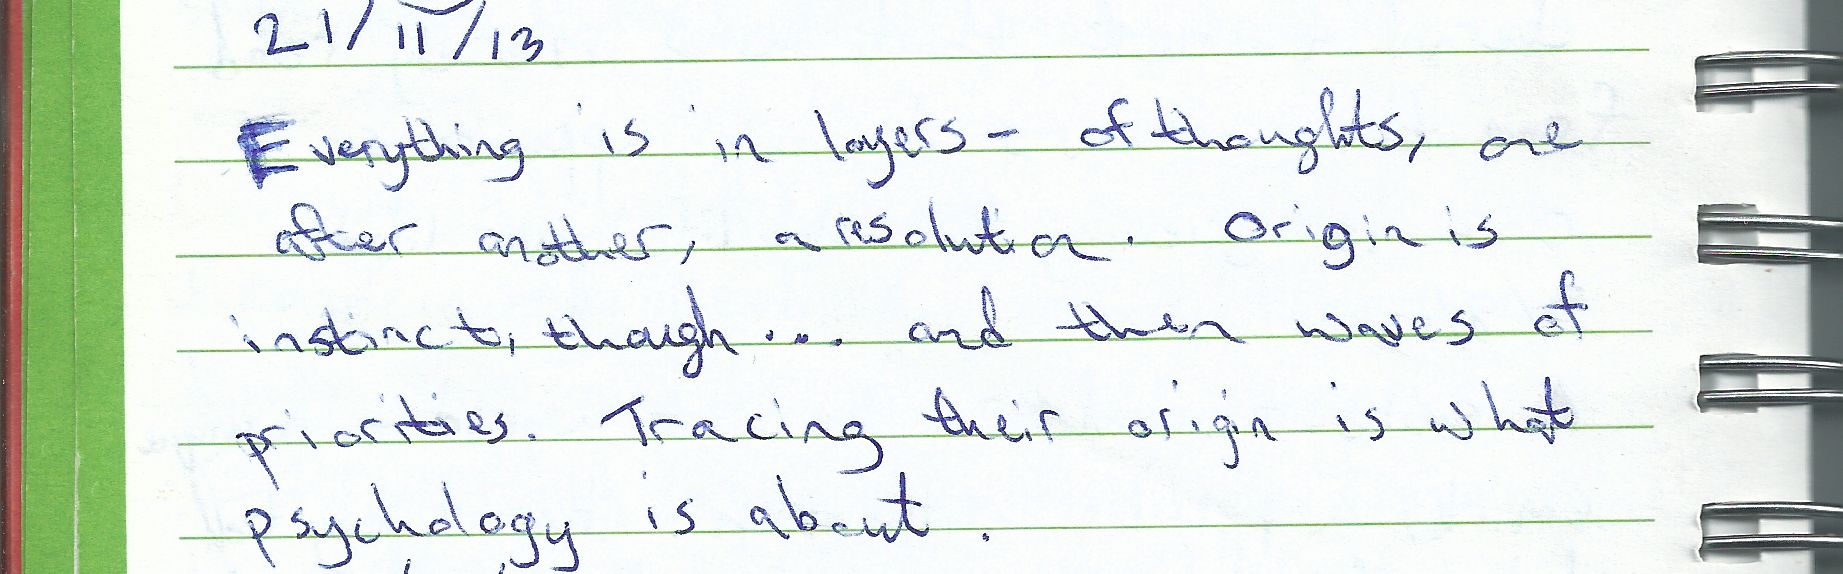 21/11/13
Everything is in layers - of thoughts, one
after another, a resolution. Origin is
instinct, though... and then waves of
priorities. Tracing their origin is what
psychology is about.